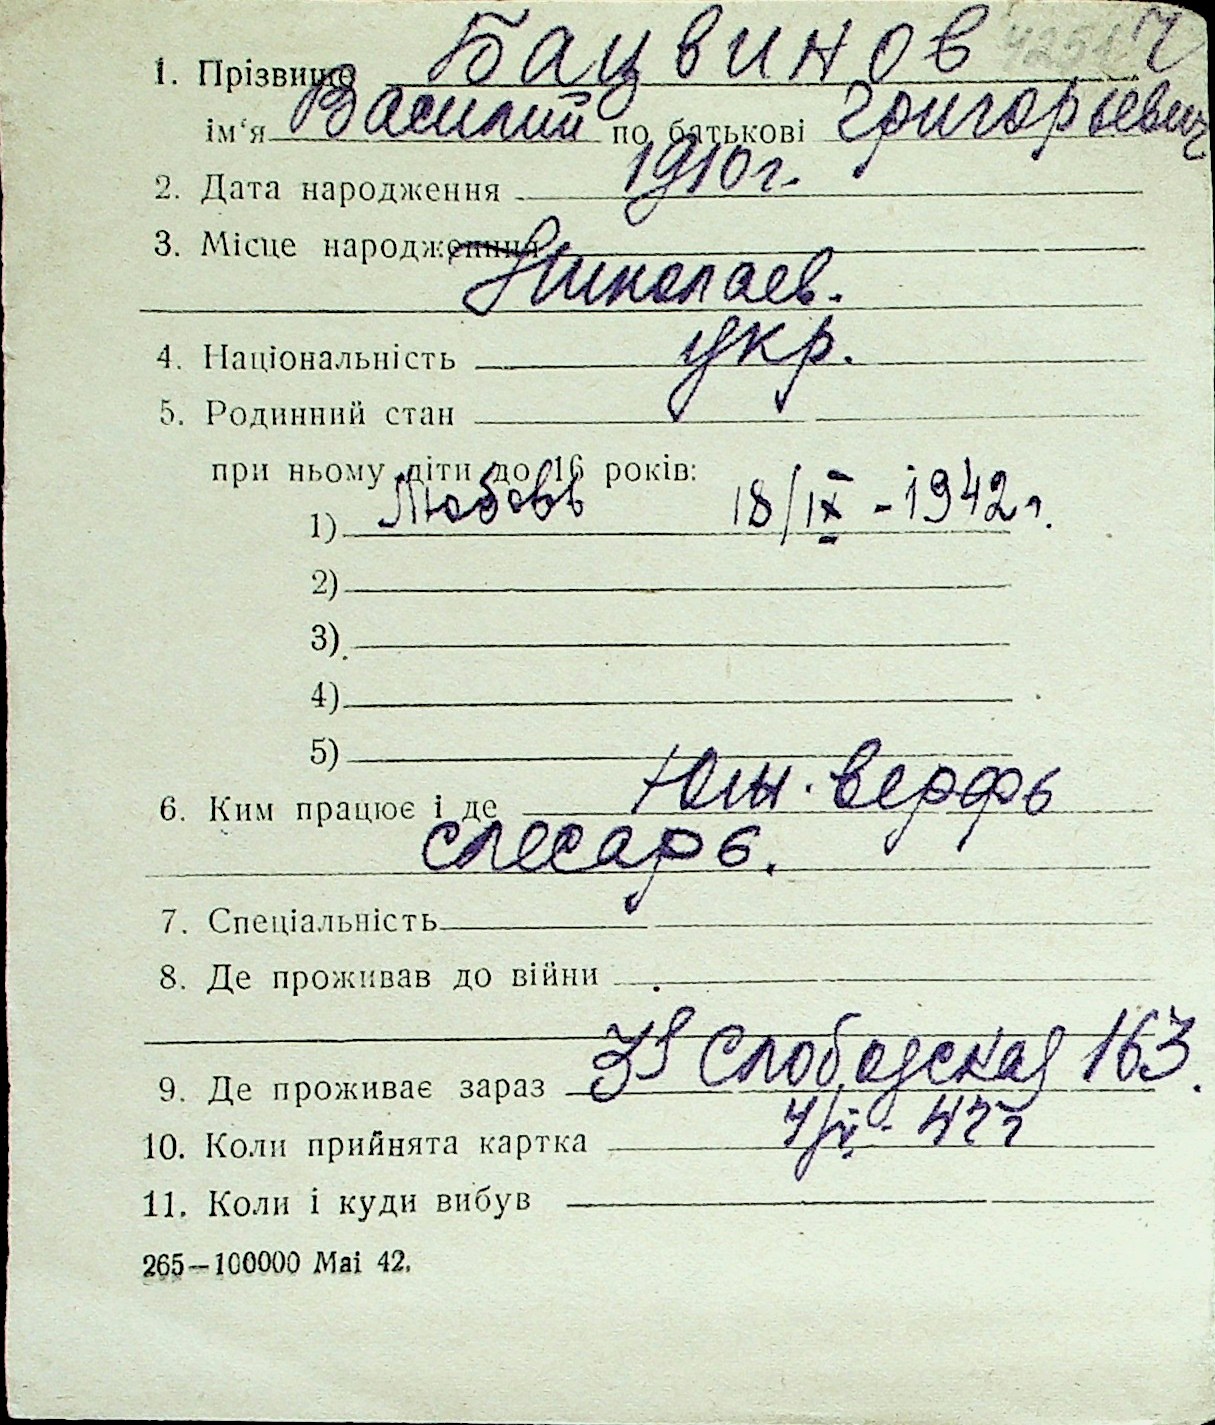 1. Прізвище Бацвинов
ім'я Василий по батькові Григорьевич
2. Дата народження 1910 г.
3. Місце народження
Николаев.
4. Національність укр.
5. Родинний стан
при ньому діти до 16 років:
1) Любовь 18/IX - 1942 г.
2)
3)
4)
5)
6. Ким працює і де Южн. верфь
слесарь.
7. Спеціальність
8. Де проживав до війни
9. Де проживає зараз Слободская 163.
10. Коли прийнята картка
11. Коли і куди вибув
265—100000 Mai 42.